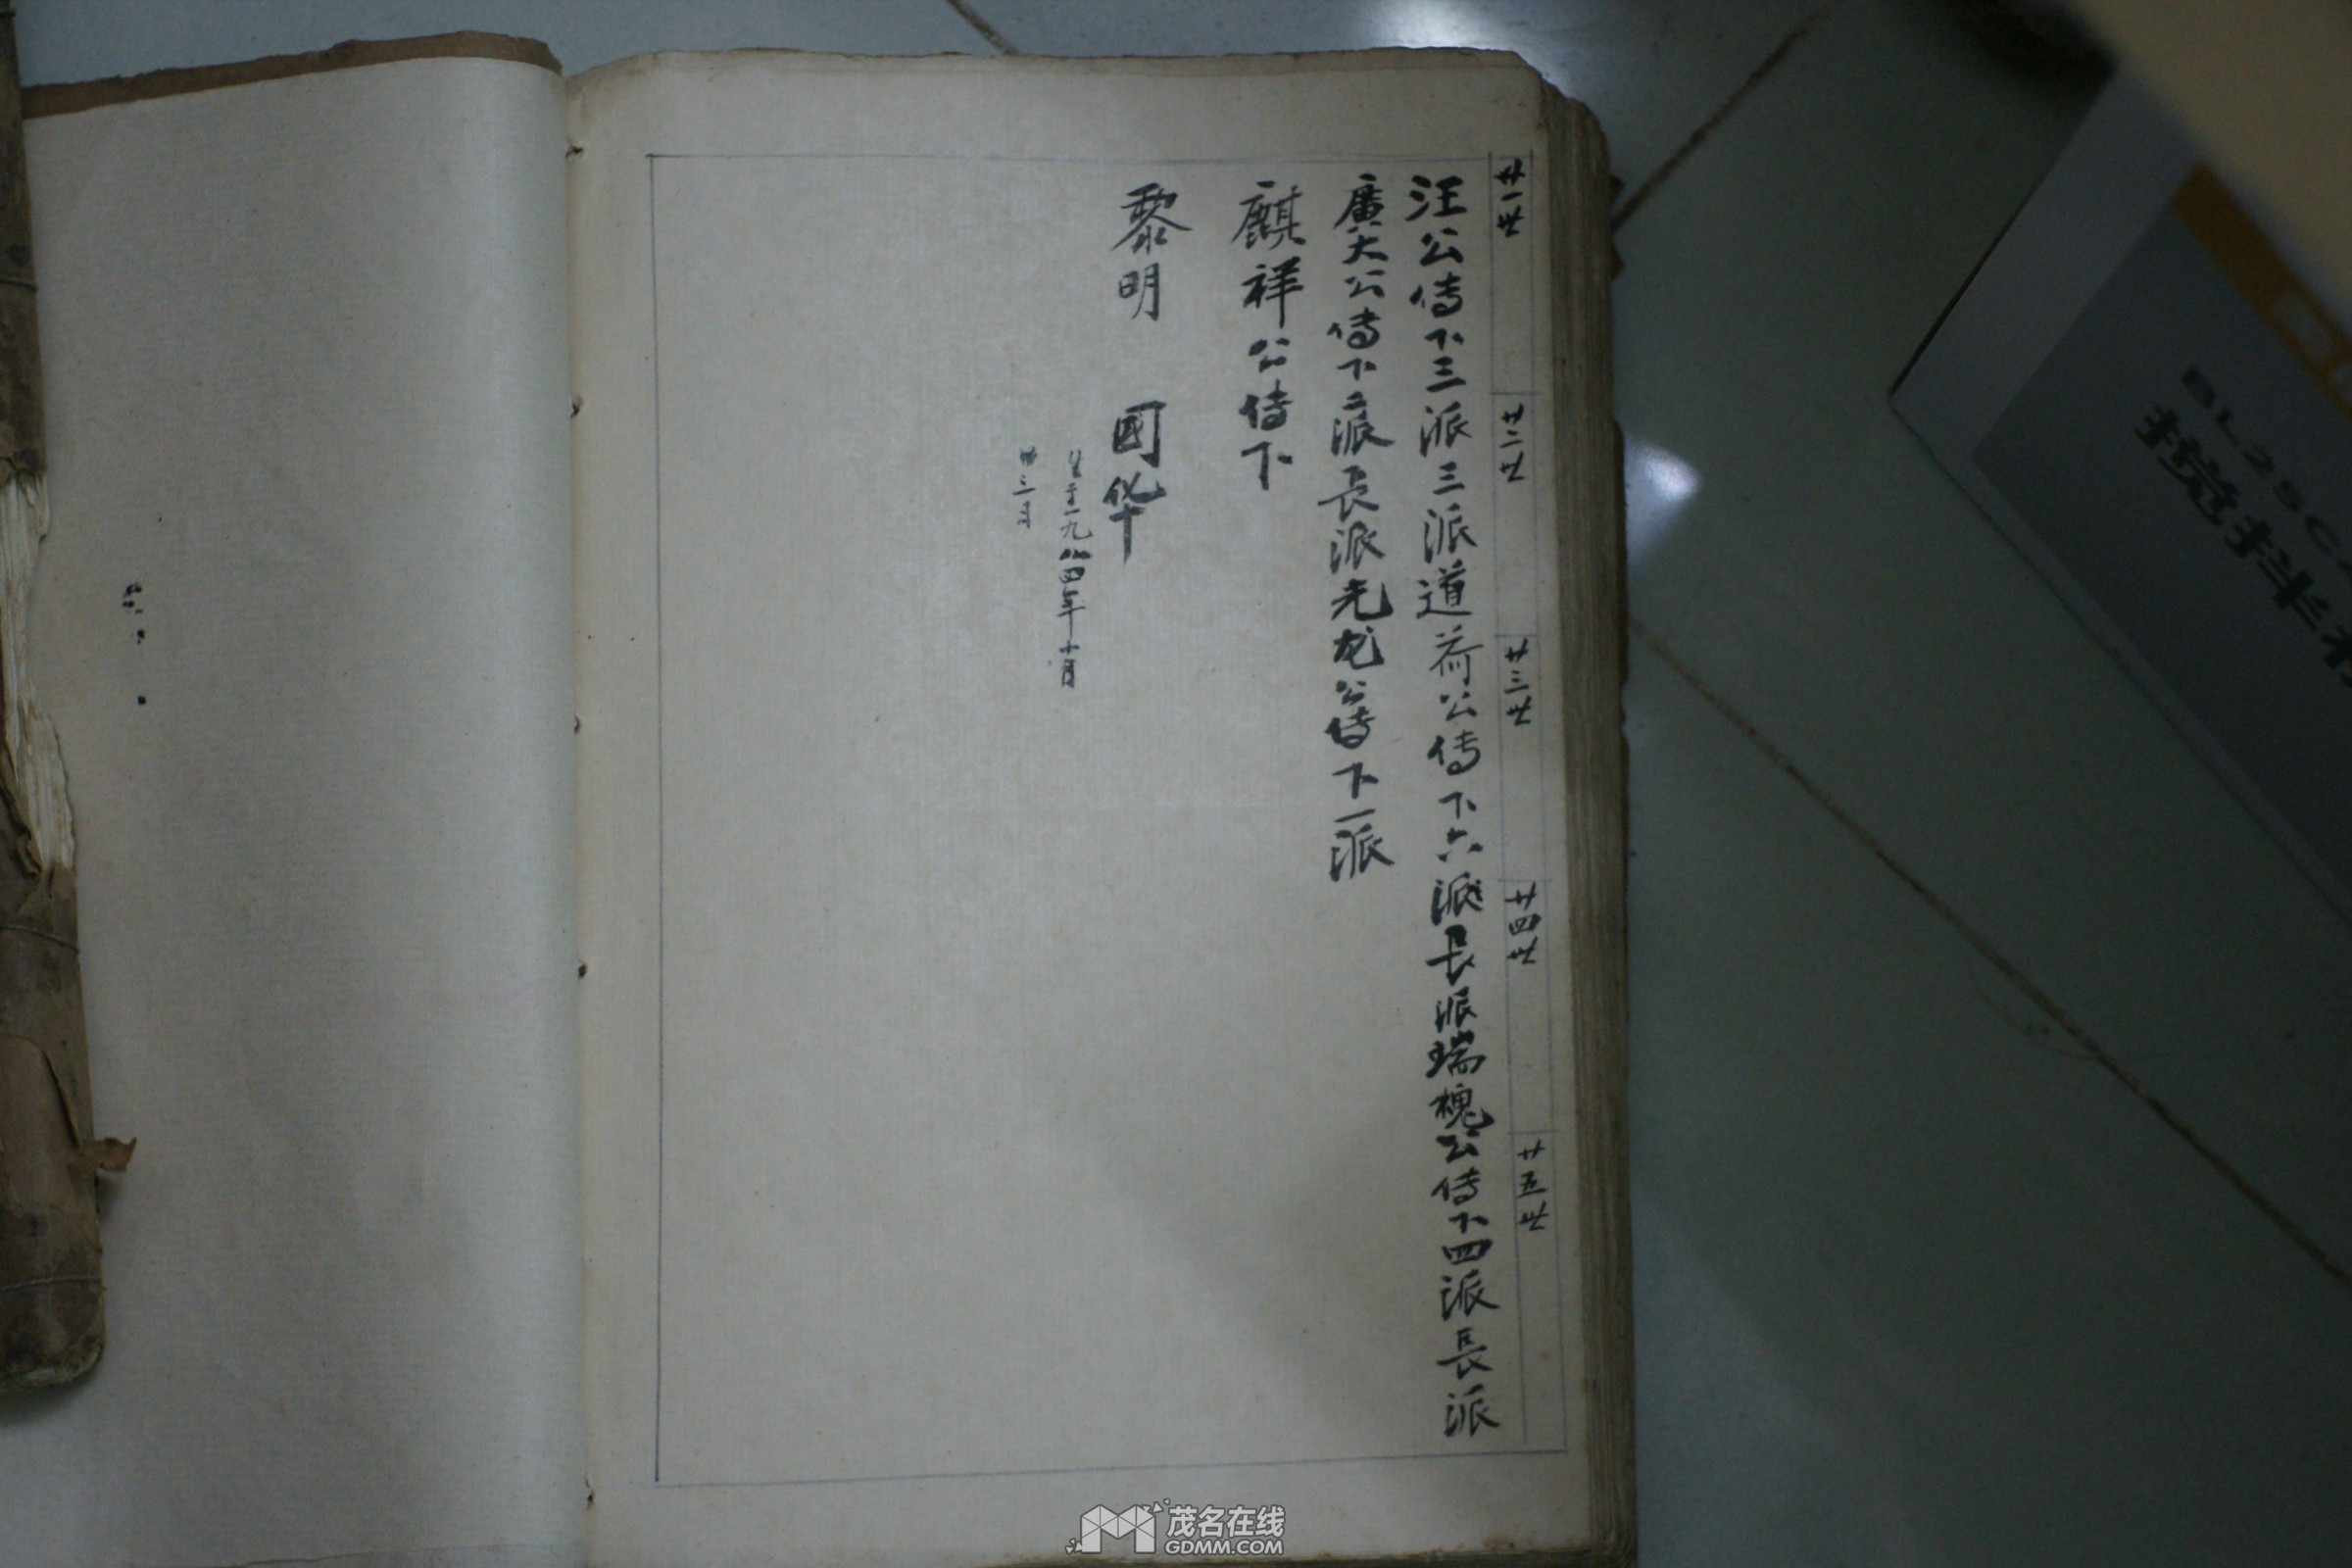 廿一世
廿二世
廿三世
廿四世
廿五世
汪公传下三派三派道荷公传下六派長派瑞槐公传下四派長派
廣大公传下二派長派光龙公传下一派
麒祥公传下
黎明 國华
生于一九八四年十月
三月
BL25C
搅拌
茂名在线
GDMM.COM